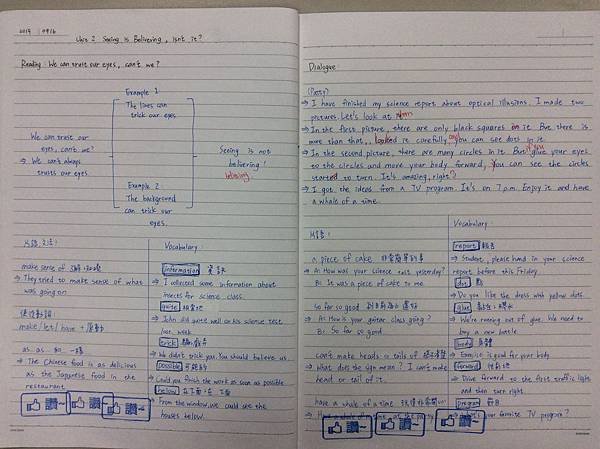 2014 09/16
Unit 2 Seeing Is Believing, isn't it?
Reading: We can trust our eyes, can't we?
Example 1
The lines can
trick our eyes.
We can trust our
eyes, can't we?
→ We can't always
trusts our eyes
Seeing is not
believing!
believing.
Example 2
The background
can trick our
eyes.
make sense of
→ They tried to make sense of what
was going on
使役動詞:
make / let / have + 原動
as...as 如...一樣
→ The Chinese food is as delicious
as the Japanese food in the
restaurant.
Vocabulary:
information 資訊
→ I collected some information about
insects for science class.
quite 相當地
→ John did quite well on his science test
last week.
trick
→ We didn't trick you. You should believe us.
possible 可能的
→ Could you finish the work as soon as possible
below
→ From the window, we could see the
houses below.
讚~
讚~
讚~
Dialogue:
(Patty)
→ I have finished my science report about optical illusions. I made two
pictures. Let's look at them
→ In the first picture, there are only black squares in it. But there is
more than that, looked it carefully, and you can see dots in it.
→ In the second picture, there are many circles in it. But if you glue your eyes
to the circles and move your body forward, you can see the circles
started to turn. It's amazing, right?
→ I got the ideas from a TV program. It's on 7 p.m. Enjoy it and have
a whale of a time.
片語:
a piece of cake 非常簡單的事
→ A: How was your science test yesterday?
B: It was a piece of cake to me.
So far so good 到目前為止還好
→ A: How is your guitar class going?
B: So far so good.
can't make heads or tails of
→ What does the sign mean? I can't make
head or tail of it.
have a whale of a time
Vocabulary:
report 報告
→ Student, please hand in your science
report before this Friday.
dot 點
→ Do you like the dress with yellow dots.
glue
→ We're running out of glue. We need to
buy a new bottle.
body 身體
→ Exercise is good for your body.
forward 向前地
→ Drive forward to the first traffic light
and then turn right.
program 節目
your favorite TV program?
讚~
讚~